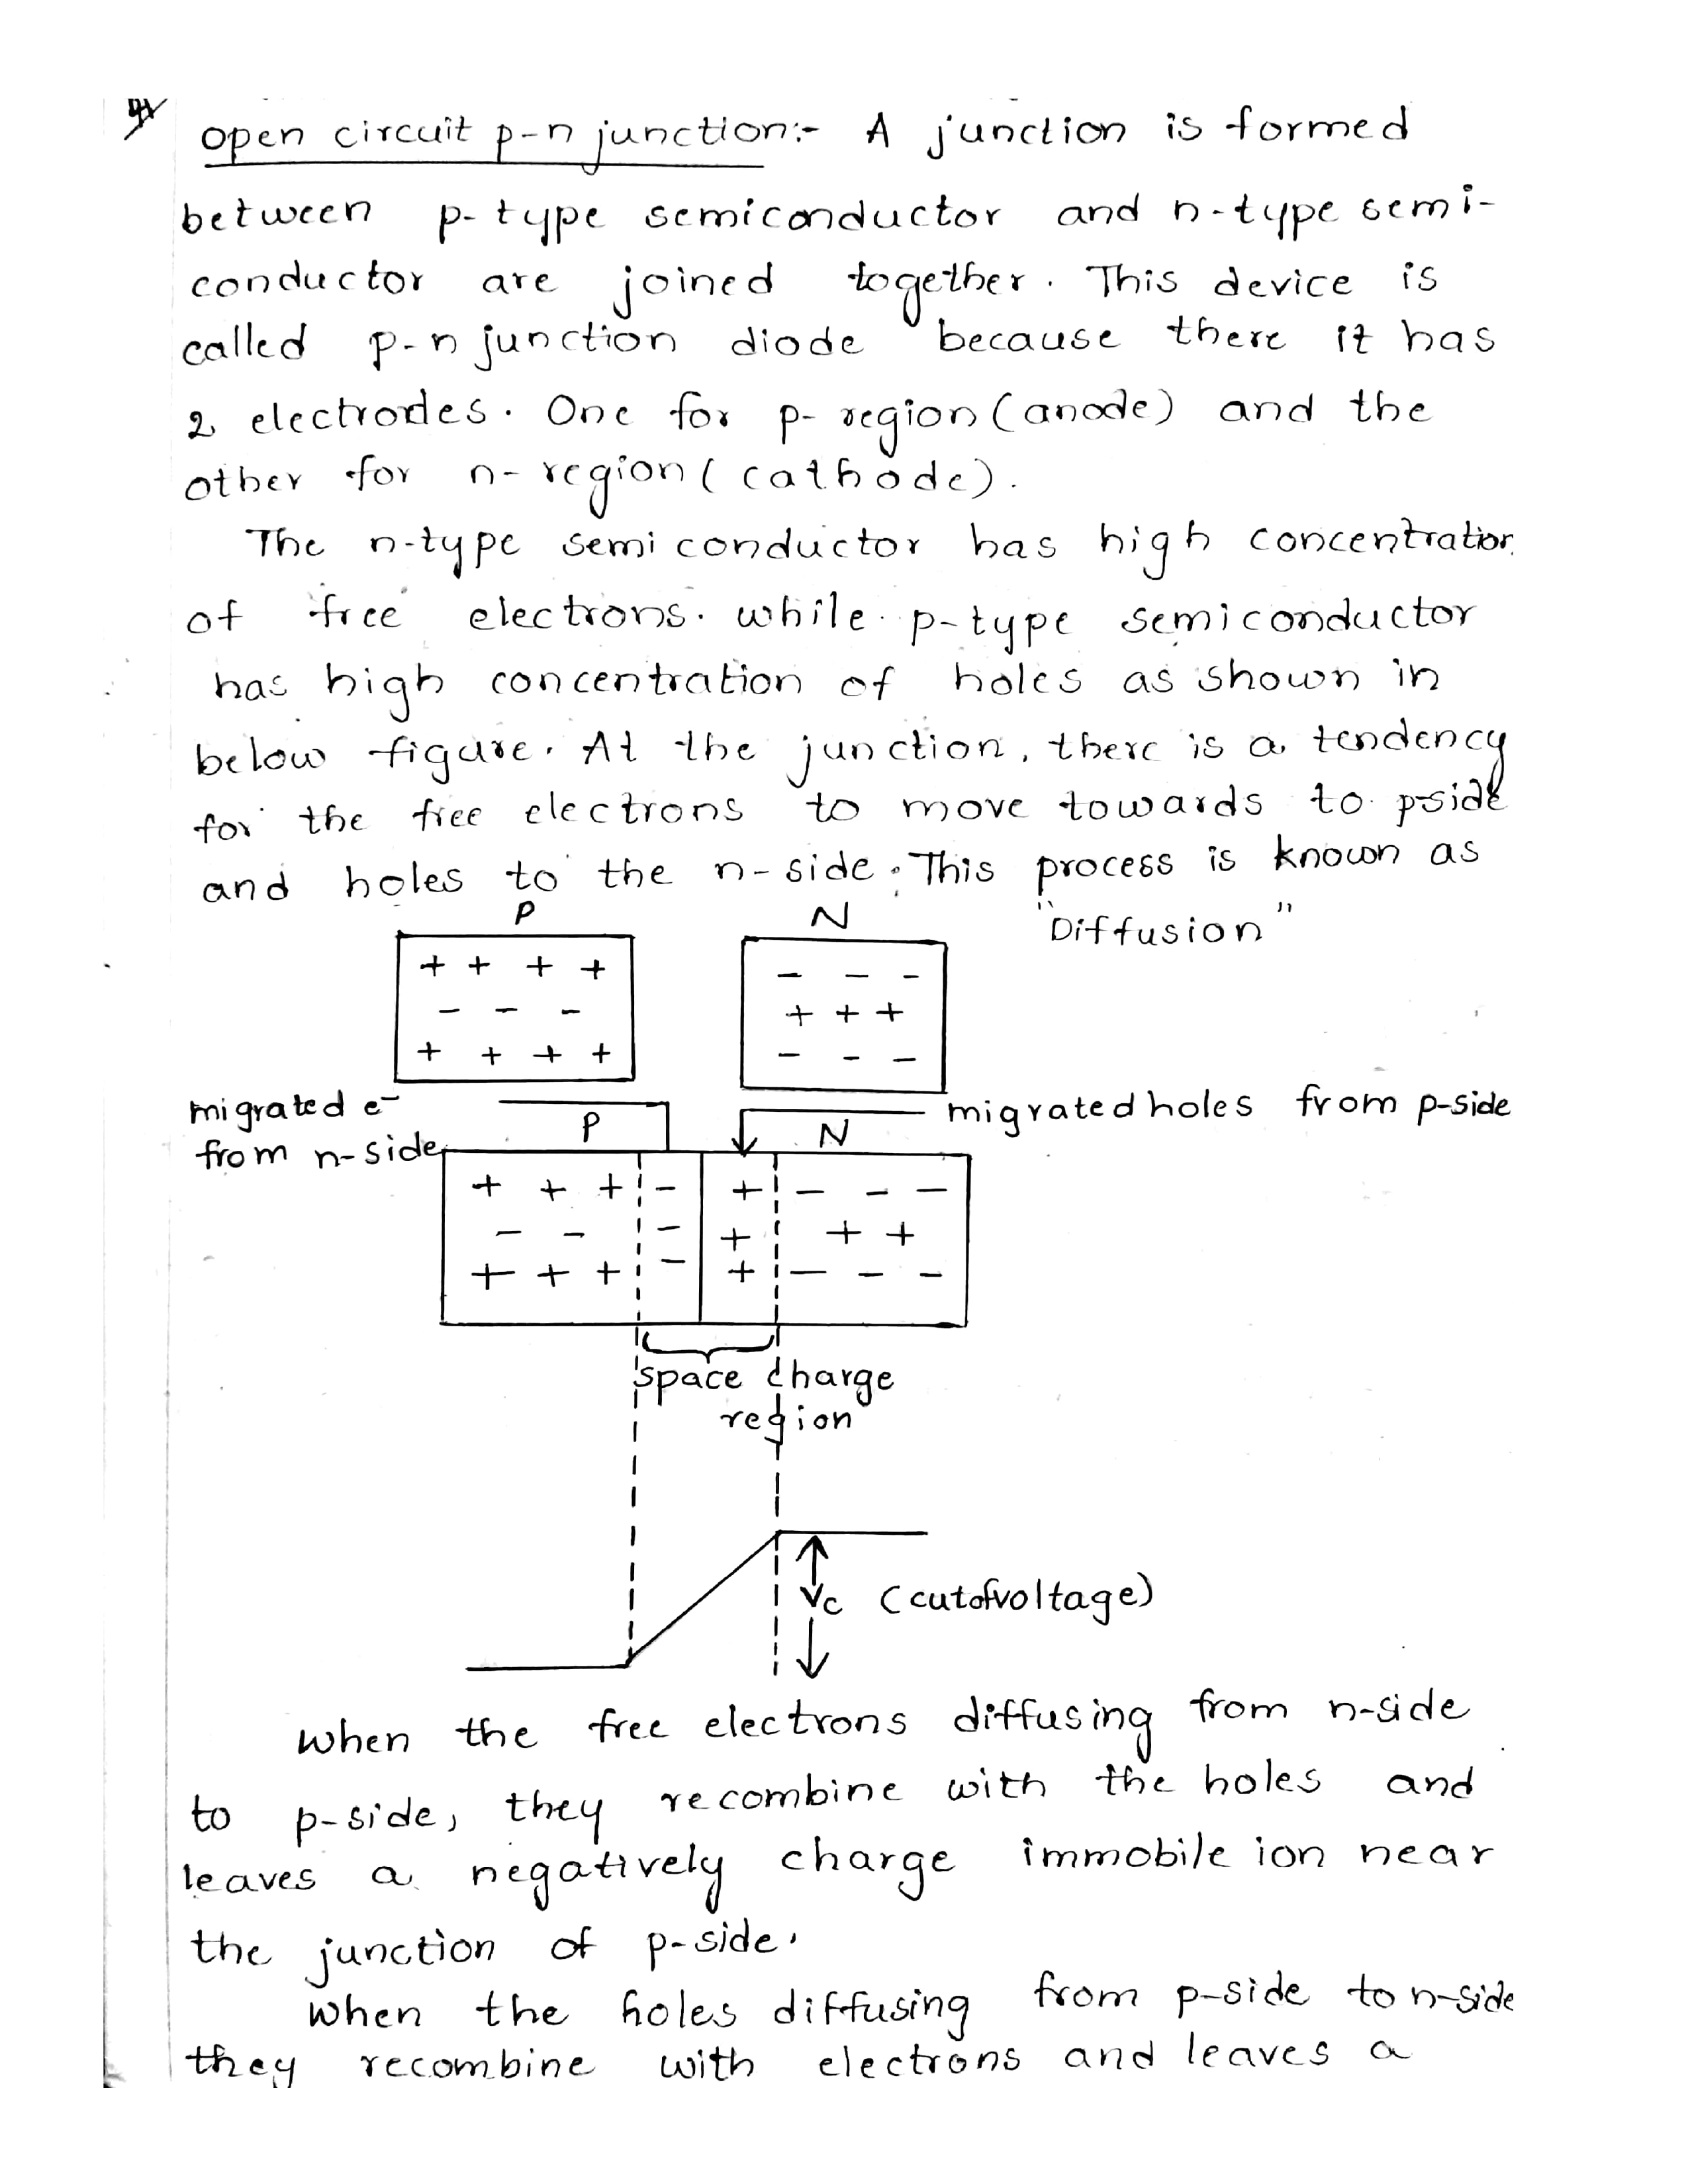 open circuit p-n junction:- A junction is formed
between p-type semiconductor and n-type semi-
conductor are joined together. This device is
called p-n junction diode because there it has
2 electrodes. One for p-region (anode) and the
other for n-region (cathode).
The n-type semiconductor has high concentration
of free electrons. while p-type semiconductor
has high concentration of holes as shown in
below figure. At the junction, there is a tendency
for the free electrons to move towards to pside
and holes to the n-side. This process is known as
"Diffusion"
P N
+ + + + - - -
- - - + + +
+ + + + - - -
migrated e-
from n-side
migrated holes from p-side
P N
+ + + - + - - -
- - - + + +
+ + + - + - - -
space charge
region
Vc (cutofvoltage)
When the free electrons diffusing from n-side
to p-side, they recombine with the holes and
leaves a negatively charge immobile ion near
the junction of p-side.
When the holes diffusing from p-side to n-side
they recombine with electrons and leaves a